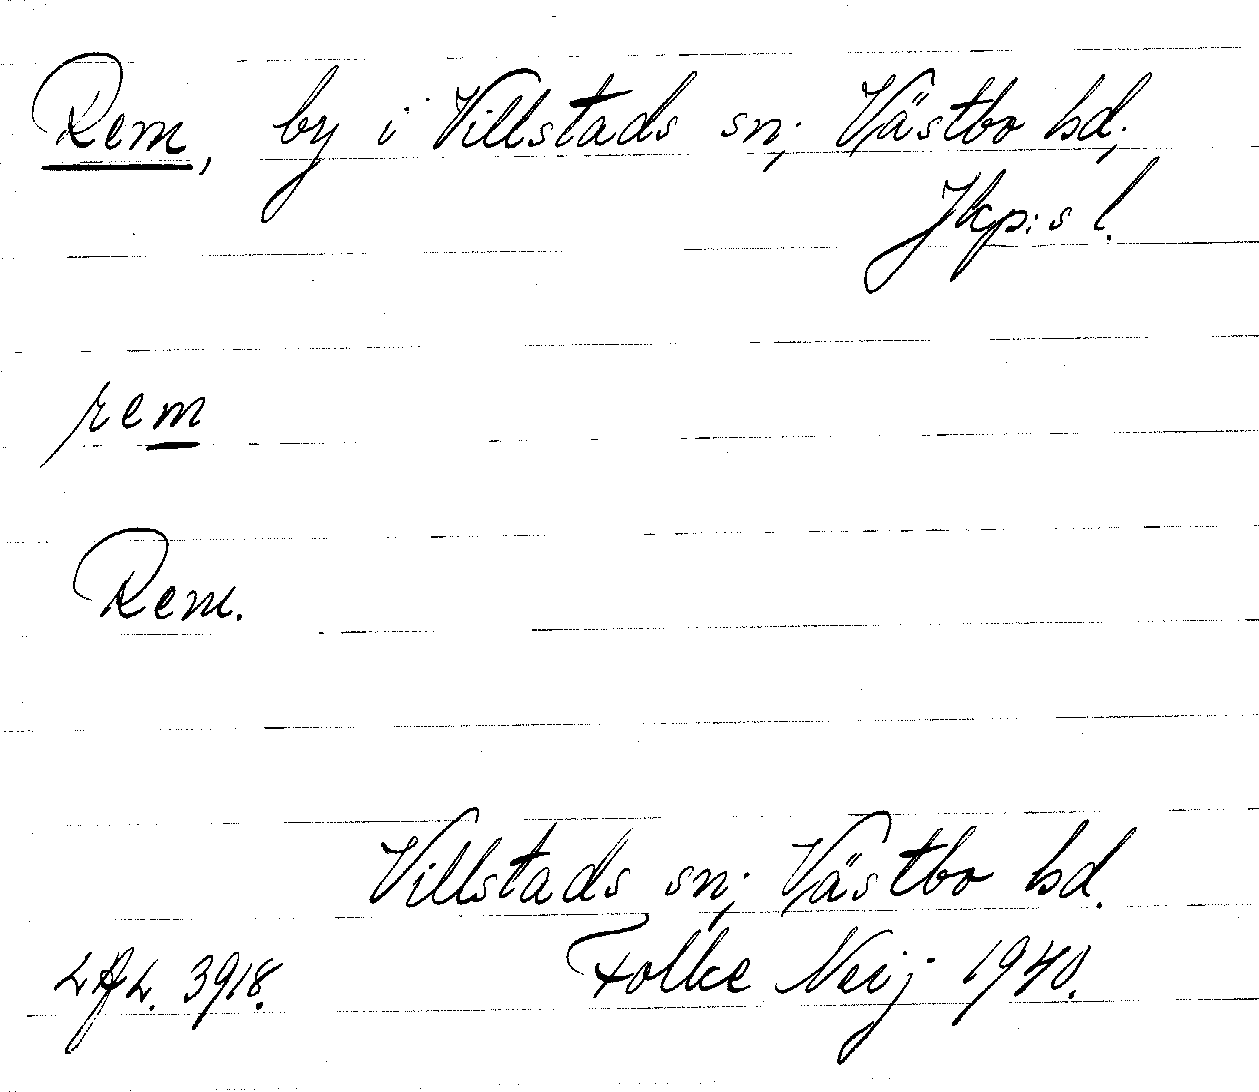 Rem, by i Villstads sn; Västbo hd;
Jkp:s l.
rem
Rem.
Villstads sn; Västbo hd.
Folke Neij 1940.
3918.